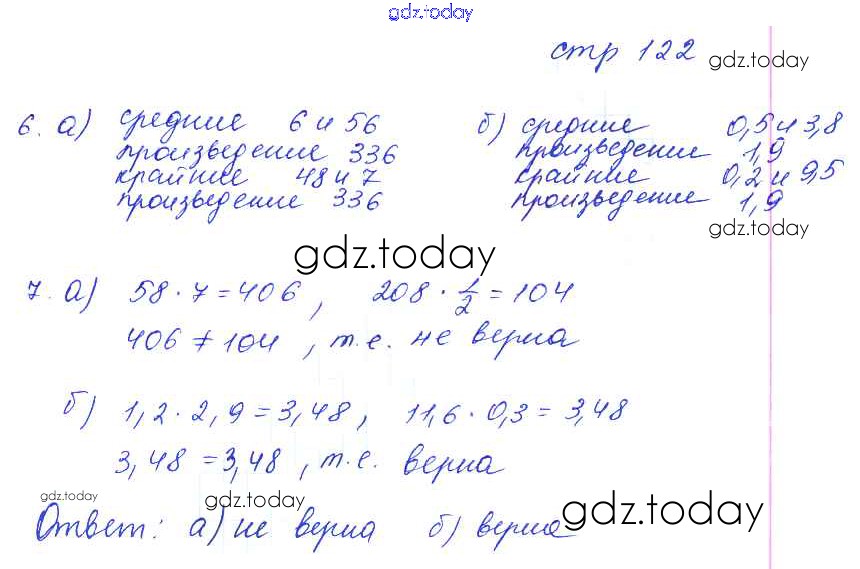 gdz.today
стр 122 gdz.today
6. а) средние 6 и 56
произведение 336
крайние 48 и 7
произведение 336
б) средние 0,5 и 3,8
произведение 1,9
крайние 0,2 и 9,5
произведение 1,9
gdz.today
gdz.today
7. а) 58 · 7 = 406, 208 · 1/2 = 104
406 ≠ 104, т.е. не верна
б) 1,2 · 2,9 = 3,48, 11,6 · 0,3 = 3,48
3,48 = 3,48, т.е. верна
gdz.today gdz.today gdz.today
Ответ: а) не верна б) верна